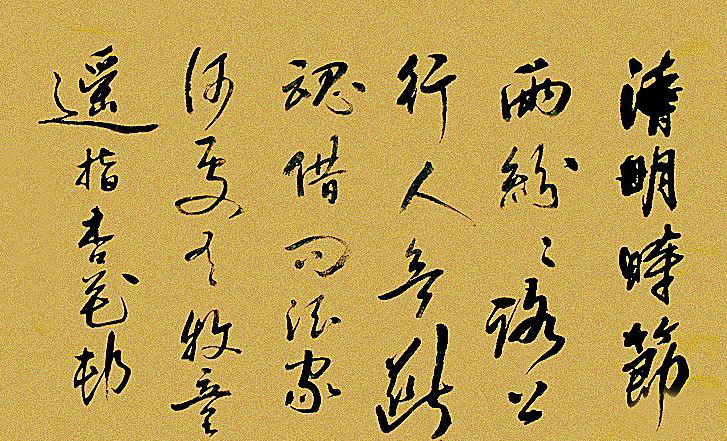 清明時節
雨紛〻路上
行人欲斷
魂借問酒家
何處有牧童
遙指杏花邨